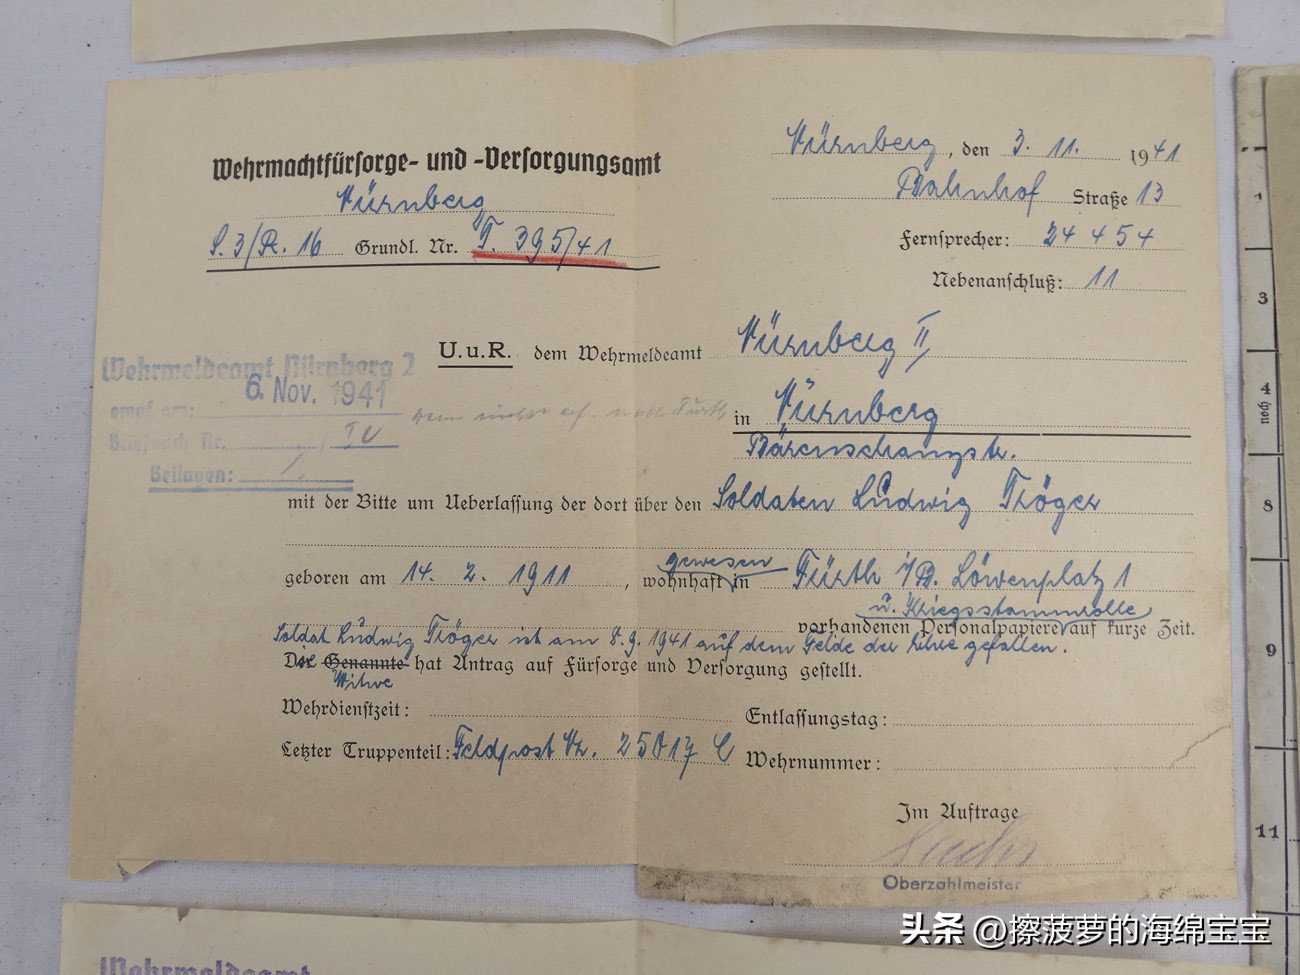 Wehrmachtfürsorge- und -Versorgungsamt
Nürnberg
S.3/R. 16 Grundl. Nr. T. 395/41
Nürnberg, den 3. 11. 1941
Bahnhof Straße 13
Fernsprecher: 24 454
Nebenanschluß: 11
Wehrmeldeamt Nürnberg 2
6. Nov. 1941
Briefbuch Nr.
Beilagen:
U.u.R. dem Wehrmeldeamt Nürnberg II
in Nürnberg
Bärenschanzstr.
mit der Bitte um Ueberlassung der dort über den Soldaten Ludwig Tröger
geboren am 14. 2. 1911, wohnhaft gewesen in Fürth i/B. Löwenplatz 1
vorhandenen Personalpapiere u. Kriegsstammrolle auf kurze Zeit.
Soldat Ludwig Tröger ist am 8.9.1941 auf dem Felde der Ehre gefallen.
Die Genannte Witwe hat Antrag auf Fürsorge und Versorgung gestellt.
Wehrdienstzeit:
Entlassungstag:
Letzter Truppenteil: Feldpost Nr. 25017 C
Wehrnummer:
Im Auftrage
Oberzahlmeister
Wehrmeldeamt
3
4
noch
8
9
11
头条 @擦菠萝的海绵宝宝